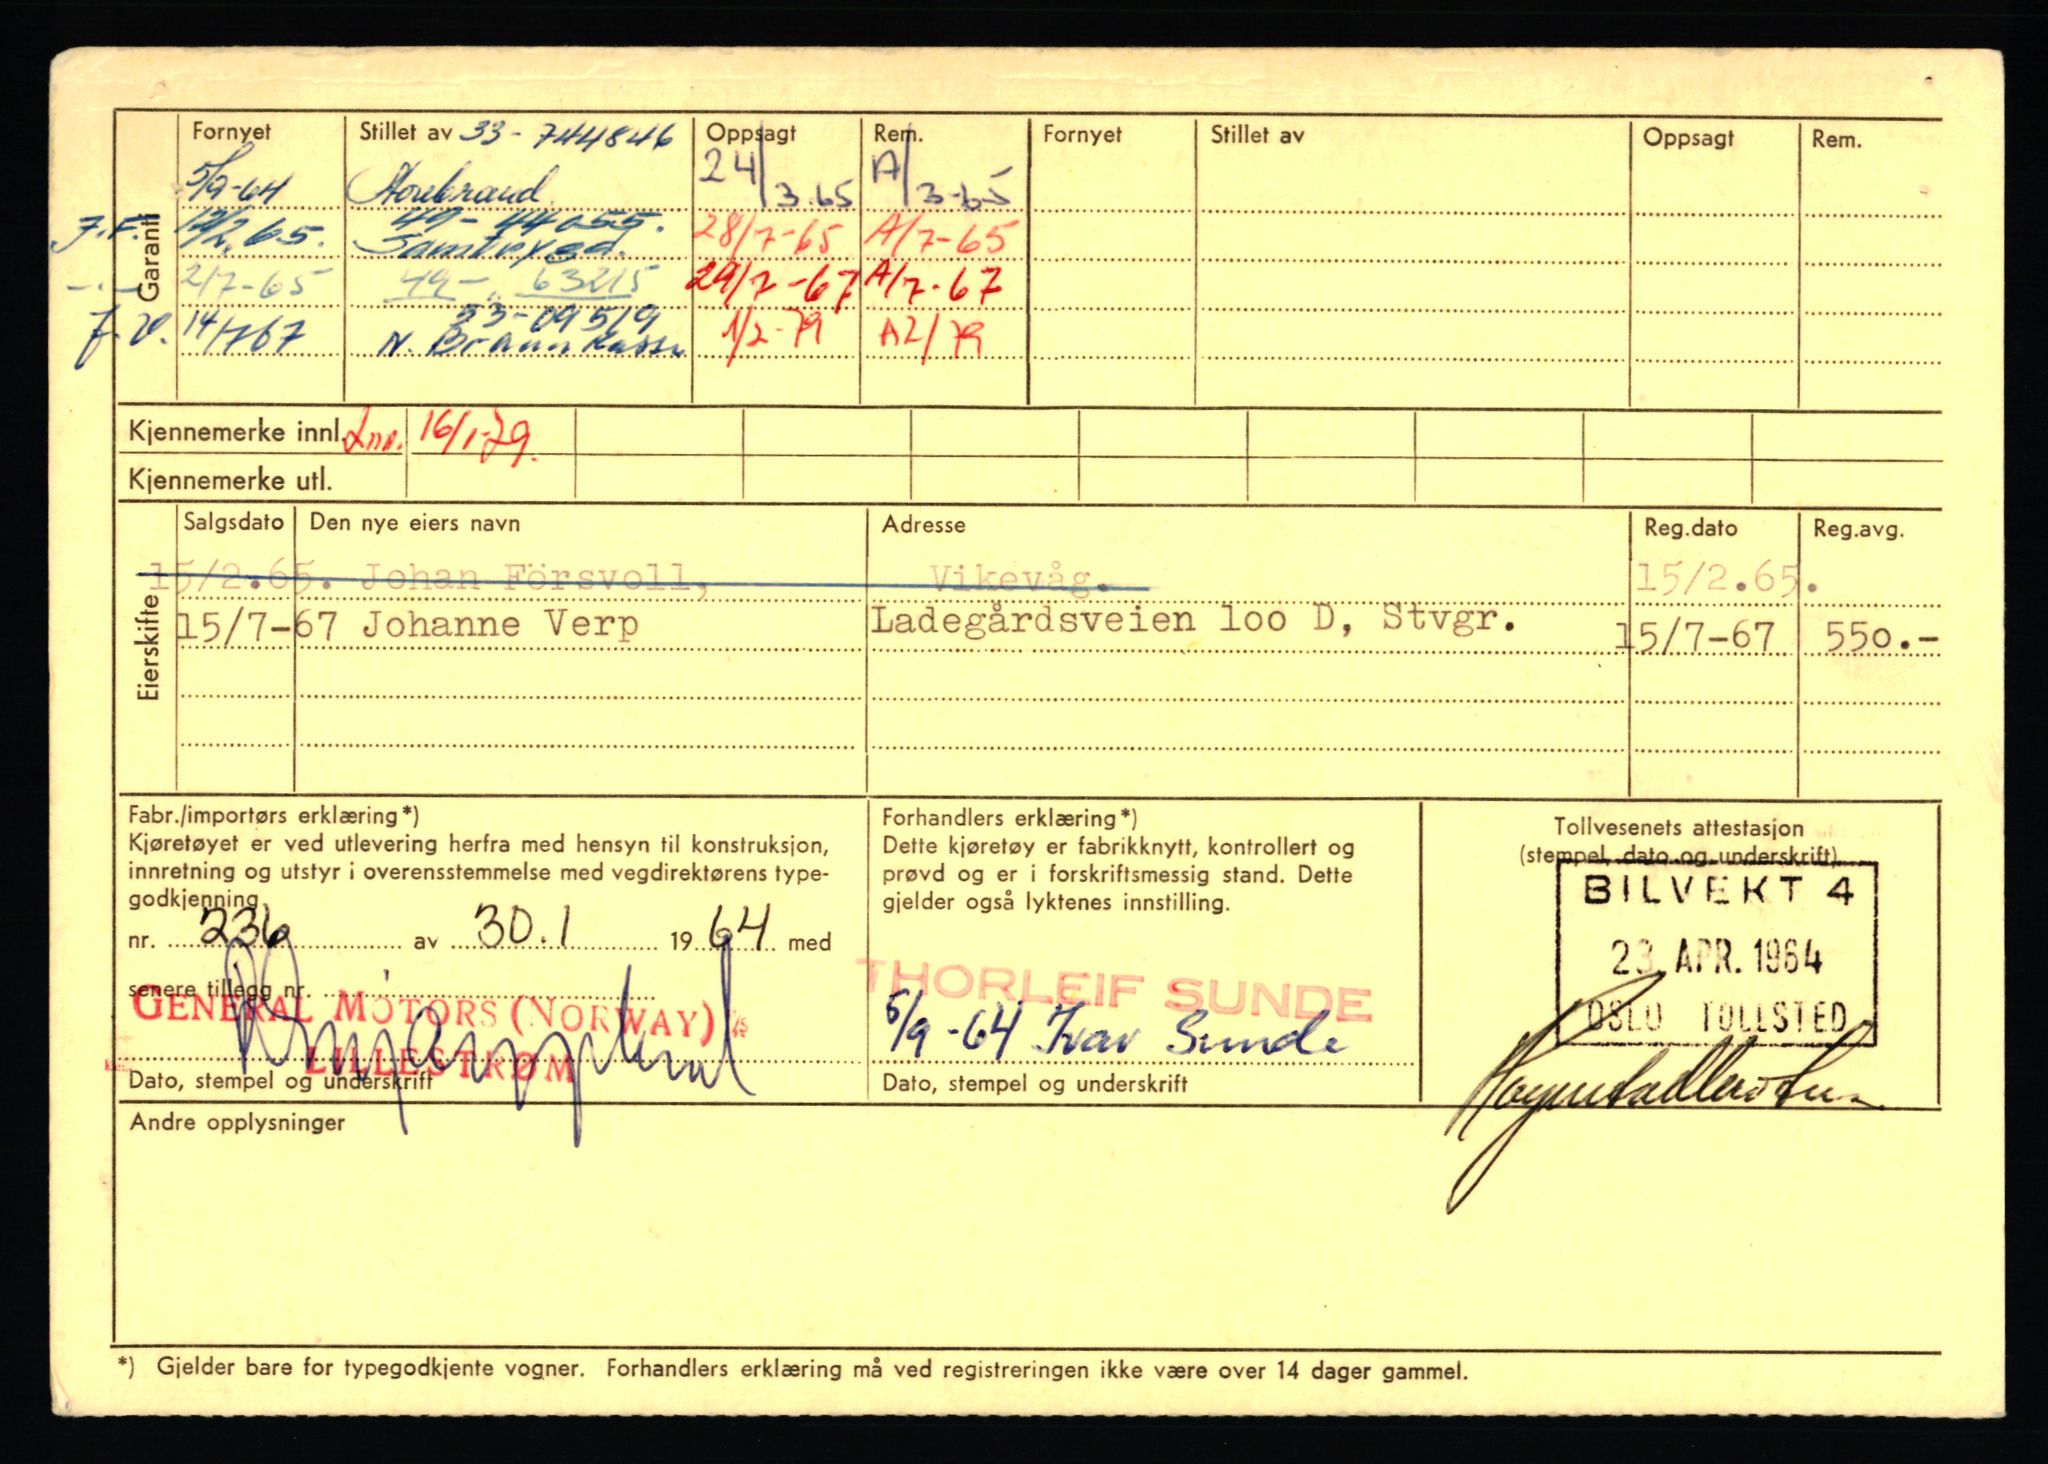 Fornyet Stillet av 33-744846 Oppsagt Rem. Fornyet Stillet av Oppsagt Rem.
5/9-64 Storebrand 24/3.65 A/3-65
J.F. 12/2.65. 49-44055. Samtrygd. 28/7-65 A/7-65
-.- 2/7-65 49-63215 29/7-67 A/7-67
J.V. 14/767 33-09519 N. Brann Kasse 1/2-79 A2/79
Garanti
Kjennemerke innl. Inn. 16/1-79.
Kjennemerke utl.
Eierskifte
Salgsdato Den nye eiers navn Adresse Reg.dato Reg.avg.
15/2.65. Johan Försvoll, Vikevåg. 15/2.65.
15/7-67 Johanne Verp Ladegårdsveien 100 D, Stvgr. 15/7-67 550.-
Fabr./importørs erklæring*)
Kjøretøyet er ved utlevering herfra med hensyn til konstruksjon,
innretning og utstyr i overensstemmelse med vegdirektørens type-
godkjenning
nr. 236 av 30.1 1964 med
senere tillegg nr.
GENERAL MOTORS (NORWAY) A/S
LILLESTRØM
Dato, stempel og underskrift
Forhandlers erklæring*)
Dette kjøretøy er fabrikknytt, kontrollert og
prøvd og er i forskriftsmessig stand. Dette
gjelder også lyktenes innstilling.
THORLEIF SUNDE
5/9-64 Ivar Sunde
Dato, stempel og underskrift
Tollvesenets attestasjon
(stempel, dato og underskrift)
BILVEKT 4
23 APR. 1964
OSLO TOLLSTED
Andre opplysninger
*) Gjelder bare for typegodkjente vogner. Forhandlers erklæring må ved registreringen ikke være over 14 dager gammel.